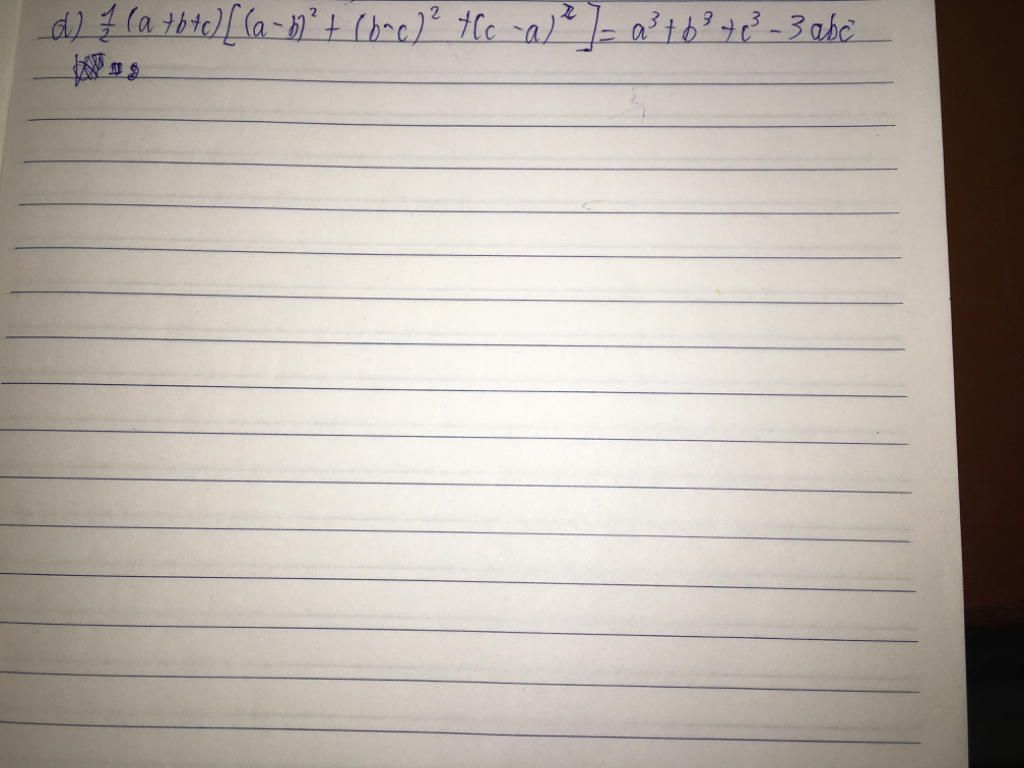 d) 1/2 (a+b+c)[(a-b)² + (b-c)² + (c-a)²] = a³ + b³ + c³ - 3abc